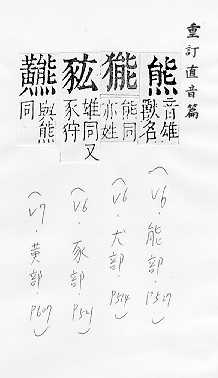 重訂直音篇
熊 音雄
獸名
㷱 能同
亦姓
豥 雄同又
豕狩
䵻 與熊
同
(V6.能部.P517)
(V6.犬部.P514)
(V6.豕部.P521)
(V7.黃部.P607)